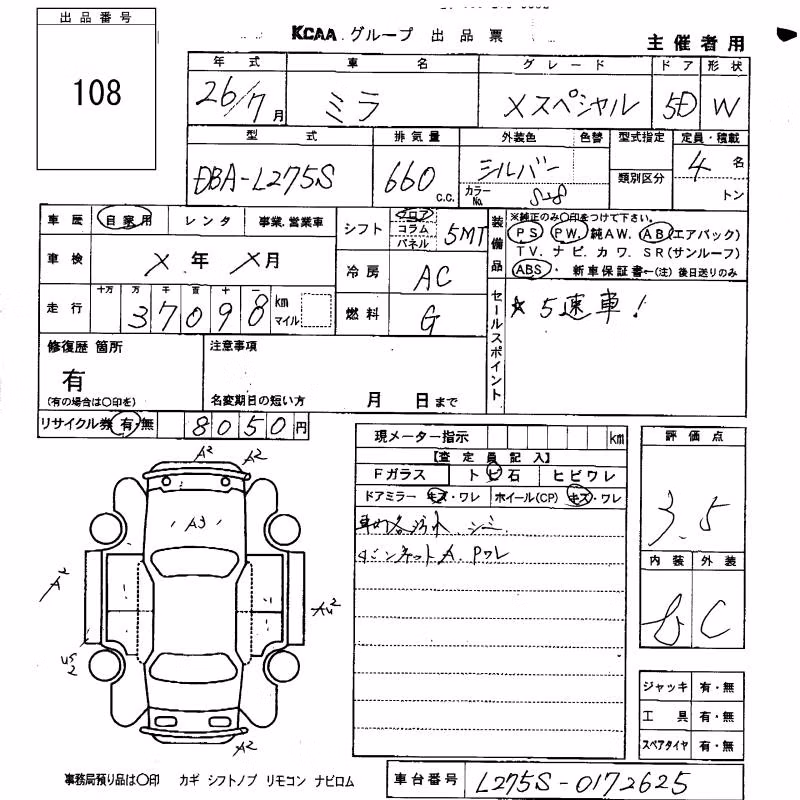 出品番号
108
KCAA グループ 出品票
主催者用
年式 車名 グレード ドア 形状
26/7月 ミラ Xスペシャル 5D W
型式 排気量 外装色 色替 型式指定 定員・積載
DBA-L275S 660 c.c. シルバー カラーNo. S28 類別区分 4名 トン
車歴 自家用 レンタ 事業.営業車
車検 X年 X月
走行 十万 万 千 百 十 一
37098 km マイル
シフト フロア コラム パネル 5MT
冷房 AC
燃料 G
装備品
※純正のみ〇印をつけて下さい。
PS PW. 純AW. AB(エアバック)
TV. ナビ. カワ. SR(サンルーフ)
ABS・新車保証書←(注)後日送りのみ
セールスポイント
☆5速車!
修復歴 箇所
有
(有の場合は〇印を)
注意事項
名変期日の短い方 月 日まで
リサイクル券 有・無 8050円
現メーター指示 km
【査定員記入】
Fガラス トビ石 ヒビワレ
ドアミラー キズ・ワレ ホイール(CP) キズ・ワレ
車内各汚れ シミ
ボンネットA. Pワレ
評価点
3.5
内装 外装
C
A2 A2
A3
A2
AU2
US2
A2
ジャッキ 有・無
工具 有・無
スペアタイヤ 有・無
事務局預り品は〇印 カギ シフトノブ リモコン ナビロム
車台番号 L275S-0172625